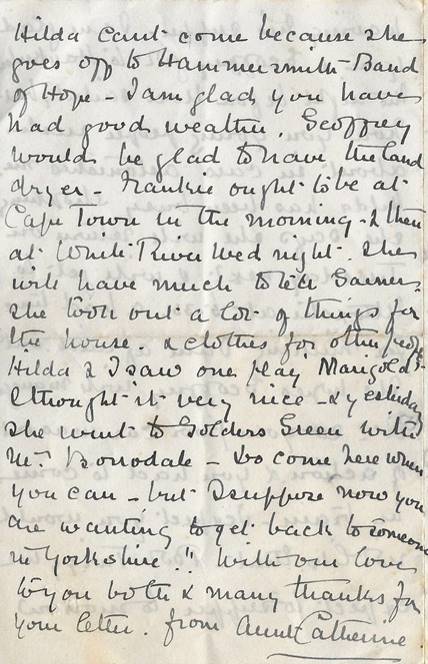 Hilda cant come because she
goes off to Hammersmith Band
of Hope - I am glad you have
had good weather. Geoffrey
would be glad to have the land
dryer - Frankie ought to be at
Cape Town in the morning - & then
at White River Wed night. She
will have much to tell
she took out a lot of things for
the house. & clothes for other people
Hilda & I saw one play Marigold
I thought it very nice - & yesterday
she went to Golders Green with
Mr. - Do come here when
you can - but I suppose now you
are wanting to get back to someone
in Yorkshire!! With our love
to you both & many thanks for
your letter. from Aunt Catherine